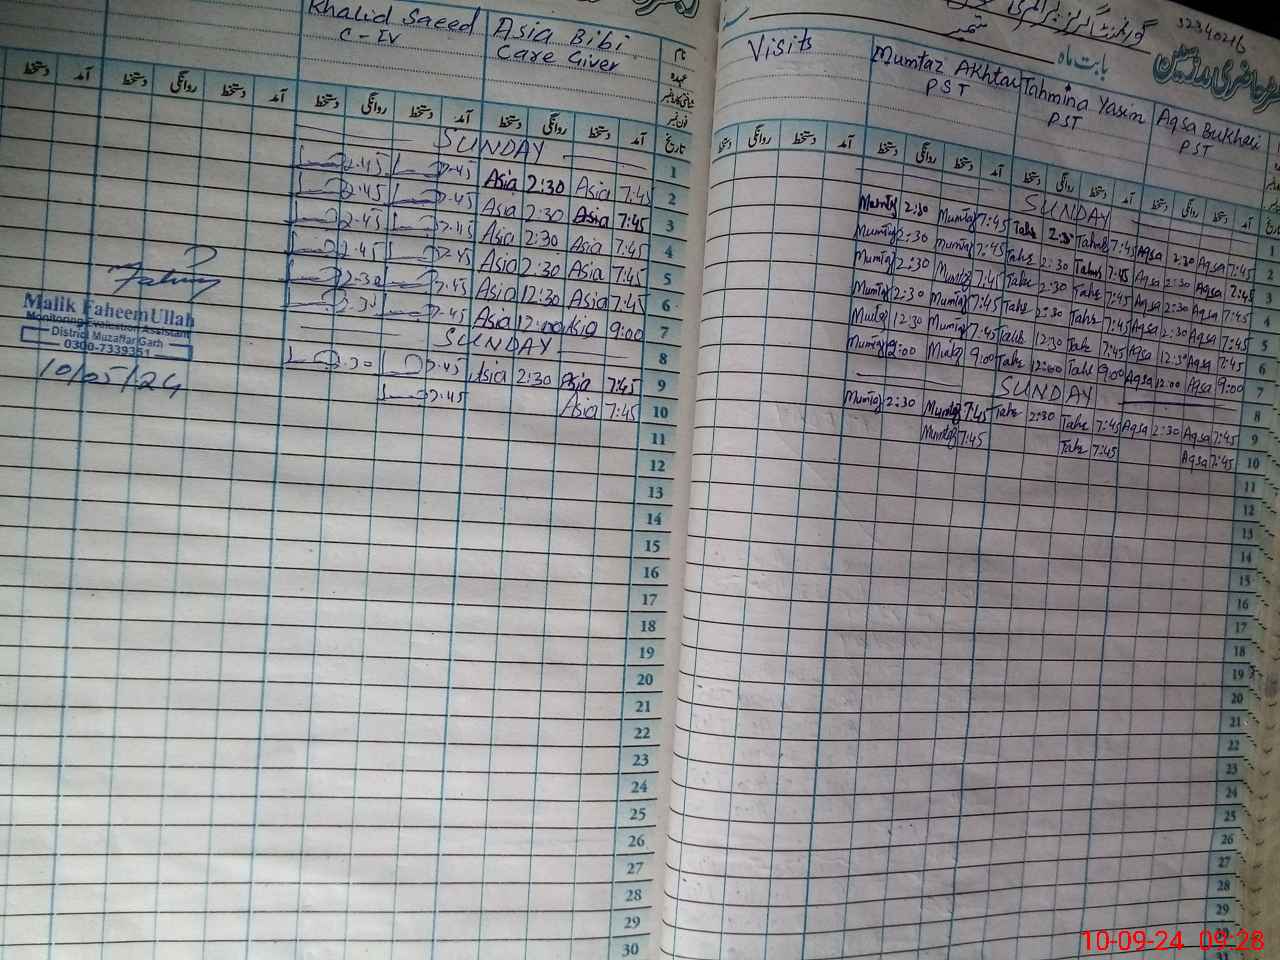 Khalid Saeed
C-IV
Asia Bibi
Care Giver
نام
عہدہ
تاریخ
آمد دستخط روانگی دستخط
SUNDAY
1
2:45 7:45 Asia 2:30 Asia 7:45 2
2:45 7:45 Asia 2:30 Asia 7:45 3
2:45 7:45 Asia 2:30 Asia 7:45 4
2:45 7:45 Asia 2:30 Asia 7:45 5
2:30 7:45 Asia 12:30 Asia 7:45 6
7:45 Asia 12:00 Asia 9:00 7
SUNDAY 8
2:30 7:45 Asia 2:30 Asia 7:45 9
7:45 Asia 7:45 10
11
12
13
14
15
16
17
18
19
20
21
22
23
24
25
26
27
28
29
30
Malik FaheemUllah
Monitoring Evaluation Assistant
District Muzaffar Garh
0300-7339351
10/05/24
32340216
بابت ماہ ستمبر
Visits
Mumtaz Akhtar
PST
Tahmina Yasin
PST
Aqsa Bukhari
PST
آمد دستخط روانگی دستخط
SUNDAY 1
Mumtaz 2:30 Mumtaz 7:45 Tahe 2:30 Tahe 7:45 Aqsa 2:30 Aqsa 7:45 2
Mumtaz 2:30 Mumtaz 7:45 Tahe 2:30 Tahe 7:45 Aqsa 2:30 Aqsa 7:45 3
Mumtaz 2:30 Mumtaz 7:45 Tahe 2:30 Tahe 7:45 Aqsa 2:30 Aqsa 7:45 4
Mumtaz 2:30 Mumtaz 7:45 Tahe 2:30 Tahe 7:45 Aqsa 2:30 Aqsa 7:45 5
Mumtaz 12:30 Mumtaz 7:45 Tahe 12:30 Tahe 7:45 Aqsa 12:30 Aqsa 7:45 6
Mumtaz 12:00 Mumtaz 9:00 Tahe 12:00 Tahe 9:00 Aqsa 12:00 Aqsa 9:00 7
SUNDAY 8
Mumtaz 2:30 Mumtaz 7:45 Tahe 2:30 Tahe 7:45 Aqsa 2:30 Aqsa 7:45 9
Mumtaz 7:45 Tahe 7:45 Aqsa 7:45 10
11
12
13
14
15
16
17
18
19
20
21
22
23
24
25
26
27
28
29
30
31
10-09-24 09:28